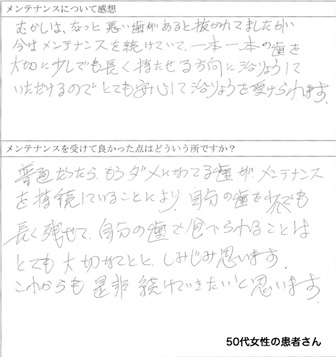 メンテナンスについて感想
むかしは、なっと悪い歯があると抜かれてましたが
今はメンテナンスを続けていて、一本一本の歯を
大切に少しでも長く持たせる方向に治りょうして
いただけるのでとても安心して治りょうを受けられます。
メンテナンスを受けて良かった点はどういう所ですか?
普通だったら、もうダメになってる歯がメンテナンス
を持続していることにより、自分の歯を1本でも
長く残せて、自分の歯で食べられることは
とても大切なことと、しみじみ思います。
これからも是非続けていきたいと思います。
50代女性の患者さん